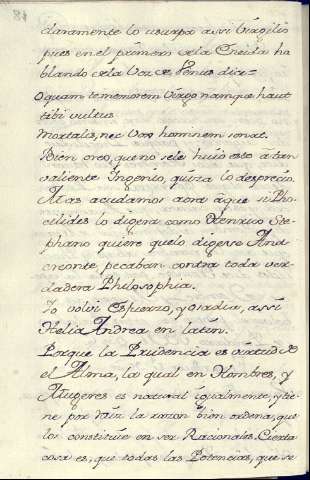 claramente lo usurpa assi Virgilio
pues en el primero de la Eneida ha
blando de la Voz de Venus dize
O quam te memorem Virgo namque haut
tibi vultus
Mortalis, nec Vox hominem sonat.
Bien creo, que no se le huió esto á tan
valiente Ingenio, quiza lo desprecio.
Mas acudamos aora á que si Pho-
cilides lo digera como Henrico Ste-
phano quiere que lo digesse Ana
creonte pecaban contra toda ver
dadera Philosophia.
Io volvi Esfuerzo, y osadia, assi
Helia Andrea en latin.
Porque la Prudencia es virtud de
el Alma, la qual en Hombres, y
Mugeres es natural igualmente, y tie
ne por la razon bien ordena, que
los constitúe en ser Racionales. Cierta
cosa es, que todas las Potencias, que se